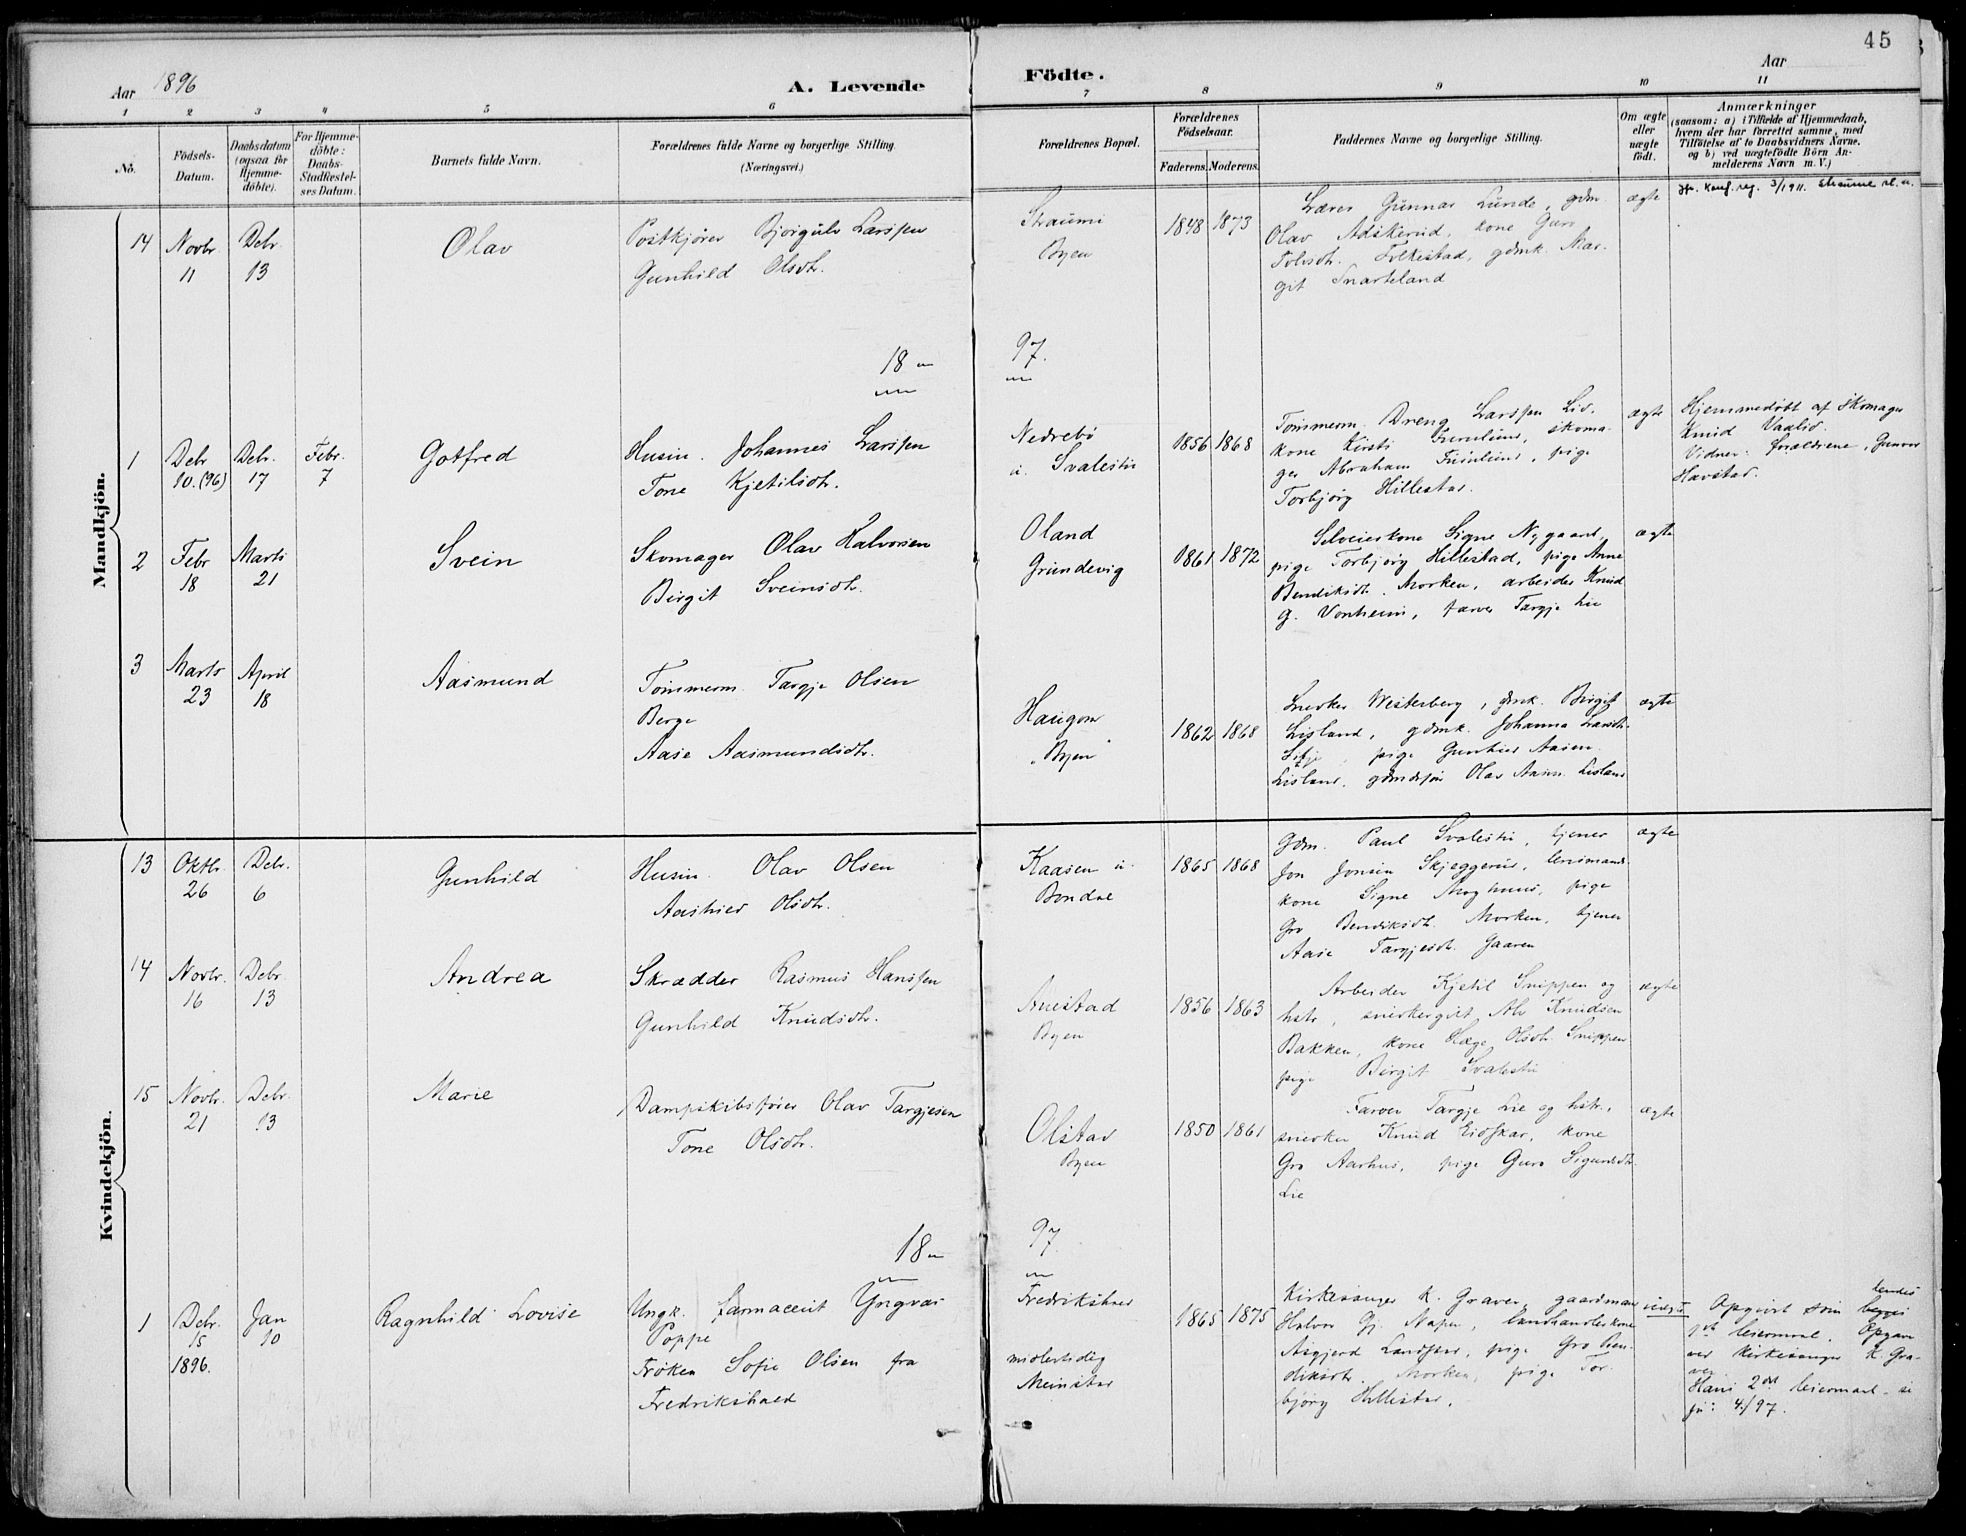 45
Aar 1896
A. Levende
Födte.
Aar
1 2 3 4 5 6 7 8 9 10 11
No.
Födsels-
Datum.
Daabsdatum
(ogsaa for
Hjemme-
döbte).
For Hjemme-
döbte:
Daabs-
Stadfæstel-
ses Datum.
Barnets fulde Navn.
Forældrenes fulde Navne og borgerlige Stilling
(Næringsvei.)
Forældrenes Bopæl.
Forældrenes
Födselsaar.
Faderens. Moderens.
Faddernes Navne og borgerlige Stilling.
Om ægte
eller
uægte
födt.
Anmærkninger
(saasom: a) i Tilfælde af Hjemmedaab,
hvem der har forrettet samme, med
Tilföielse af to Daabsvidners Navne.
og b) ved uægtefödte Börn An-
melderens Navn m. V.)
Mandkjön.
14
Novbr.
11
Debr.
13
Olav
Postkjører Bjørgulv Larsen
Gunhild Olsdtr.
Straumi
Byen
1848 1873
Lærer Gunnar Lunde, gdm
Olav Adskerud, kone Guro
Folkestad, gdmk. Mar-
git Snarteland
ægte
Konf. reg. 3/1911.
18
97.
1
Debr
10. (96)
Debr.
17
Febr.
7
Gotfred
Husm. Johannes Larssen
Tone Kjetilsdtr.
Nedrebö
u. Svalestu
1856 1868
Tømmerm. Dreng Larssen Li,
kone Kirsti, skoma-
ger Abraham, pige
Torbjörg Hillestad.
ægte
Hjemmedøbt af Skomager
Knud Vaalid.
Vidner: forældrene, Gunvor
Havstad.
2
Febr
18
Marts
21
Svein
Skomager Olav Halvorsen
Birgit Sveinsdtr.
Oland
Grundevig
1861 1872
Selveierkone Signe Nygaard,
pige Torbjörg Hillestad, pige Anne
Bendiksdtr. Morken, arbeider Knud
G. Vonheim, farver Targje Lie
ægte
3
Marts
23
April
18
Aasmund
Tømmerm. Targje Olsen
Berge
Aase Aasmundsdtr.
Haugom
Byen
1862 1868
Snedker Westerberg, gdmk. Birgit
Lisland, gdmk. Johanna
pige Gunhild Aasen.
Lisland, gdmdssön Olav Aasm. Lisland
ægte
Kvindekjön.
13
Oktbr.
26
Debr.
6
Gunhild
Husm. Olav Olsen
Aashild Olsdtr.
Kaasen u.
Bondal
1865 1868
Gdm. Paul Svalestu, tjener
Jon Jonsen Skjeggerud, lensmands-
kone Signe Moghuus, pige
Gro Bendiksdtr. Morken, tjener
Aase Targjesdtr. Gaaren
ægte
14
Novbr.
16
Debr.
13
Andrea
Skrædder Rasmus Hanssen
Gunhild Knudsdtr.
Auestad
Byen
1856 1863
Arbeider Kjetil Snippen og
hstr., snedkergut Alv Knudsen
Bakken, kone Hæge Olsdtr. Snippen
pige Birgit Svalestu
ægte
15
Novbr.
21
Debr.
13
Marie
Dampskibsfører Olav Targjesen
Tone Olsdtr.
Olstad
Byen
1850 1861
Farver Targje Lie og hstr.,
snedker Knud Eidskar, kone
Gro Aarhus, pige Guro Sigurdsdtr.
Lie
ægte
18
97
1
Debr.
15
1896.
Jan
10
Ragnhild Lovise
Ungk. farmaceut Yngvar
Poppe
Frøken Sofie Olsen fra
Fredrikshald
Fredrikshald
midlertidig
Meinstad
1865 1875
Kirkesanger K. Graver, gaardmand
Halvor Gj. Napen, landhandlerkone
Asgjerd Landsverk, pige Gro Ben-
diksdtr. Morken, pige Tor-
björg Hillestad.
uægte
Opgivet som hendes
1ste leiermaal. Opgave
ved kirkesanger K. Gra-
ver
Hans 2det leiermaal.
4/97.